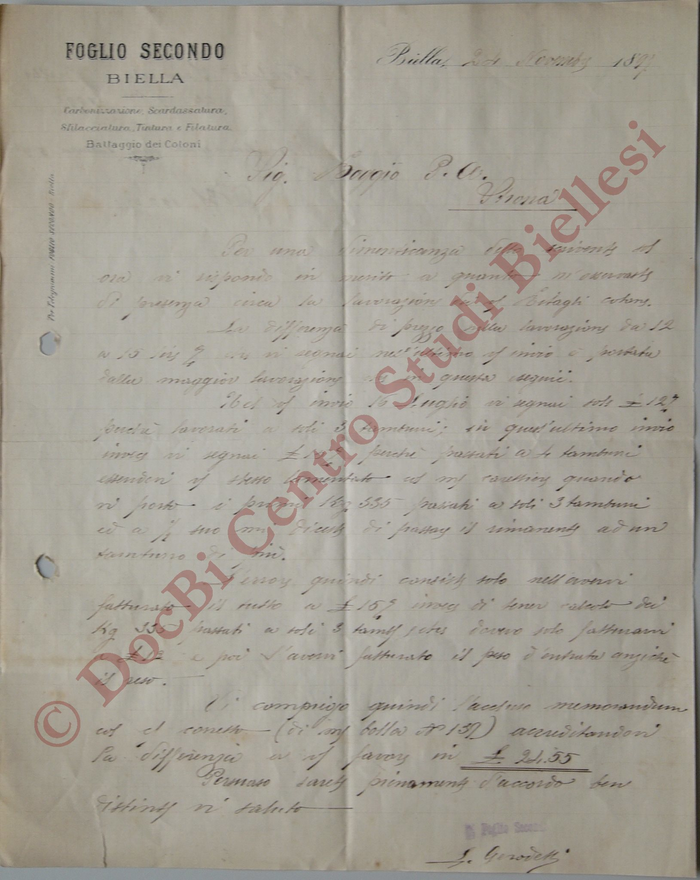 FOGLIO SECONDO
BIELLA
Carbonizzazione, Scardassatura,
Sfilacciatura, Tintura e Filatura
Battaggio dei Cotoni
Per Telegrammi FOGLIO SECONDO - Biella
Biella, 24 Novembre 1897
Sig. Boggio P. A.
Strona
Per una dimenticanza dello scrivente
ora vi rispondo in merito a quanto
di presenza circa la lavorazione Ritagli cotone.
La differenza di prezzo sulla lavorazione da 12
a 15 invio è portata
dalla maggior lavorazione che in questa eseguii.
invio 16 Luglio vi segnai sole £ 12
perchè lavorati a soli 3 tamburi; in quest'ultimo invio
invece vi segnai £ perchè passati a 4 tamburi
essendovi stesso lamentato quando
vi portò i primi Kg 335 passati a soli 3 tamburi
ed a mi diceste di passare il rimanente ad un
tamburo di più.
L'errore quindi consiste solo nell'avervi
fatturato il tutto a £ invece di tener calcolo dei
Kg 335 passati a soli 3 tamb dovevo solo fatturarvi
a £ 12 e poi l'avervi fatturato il peso d'entrata anzichè
il peso.
Vi compiego quindi l'accluso memorandum
(di mia bolla N° 137) accreditandovi
la differenza a favore in £ 24.55
Persuaso sarete pienamente d'accordo ben
distinte vi saluto
Foglio Secondo
© DocBi Centro Studi Biellesi